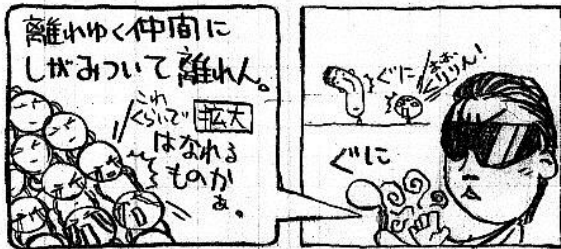 離れゆく仲間に
しがみついて離れん。
これ
くらいで
拡大
はなれる
ものか
ぁ。
ぐに
おお
くりりん!
ぐに